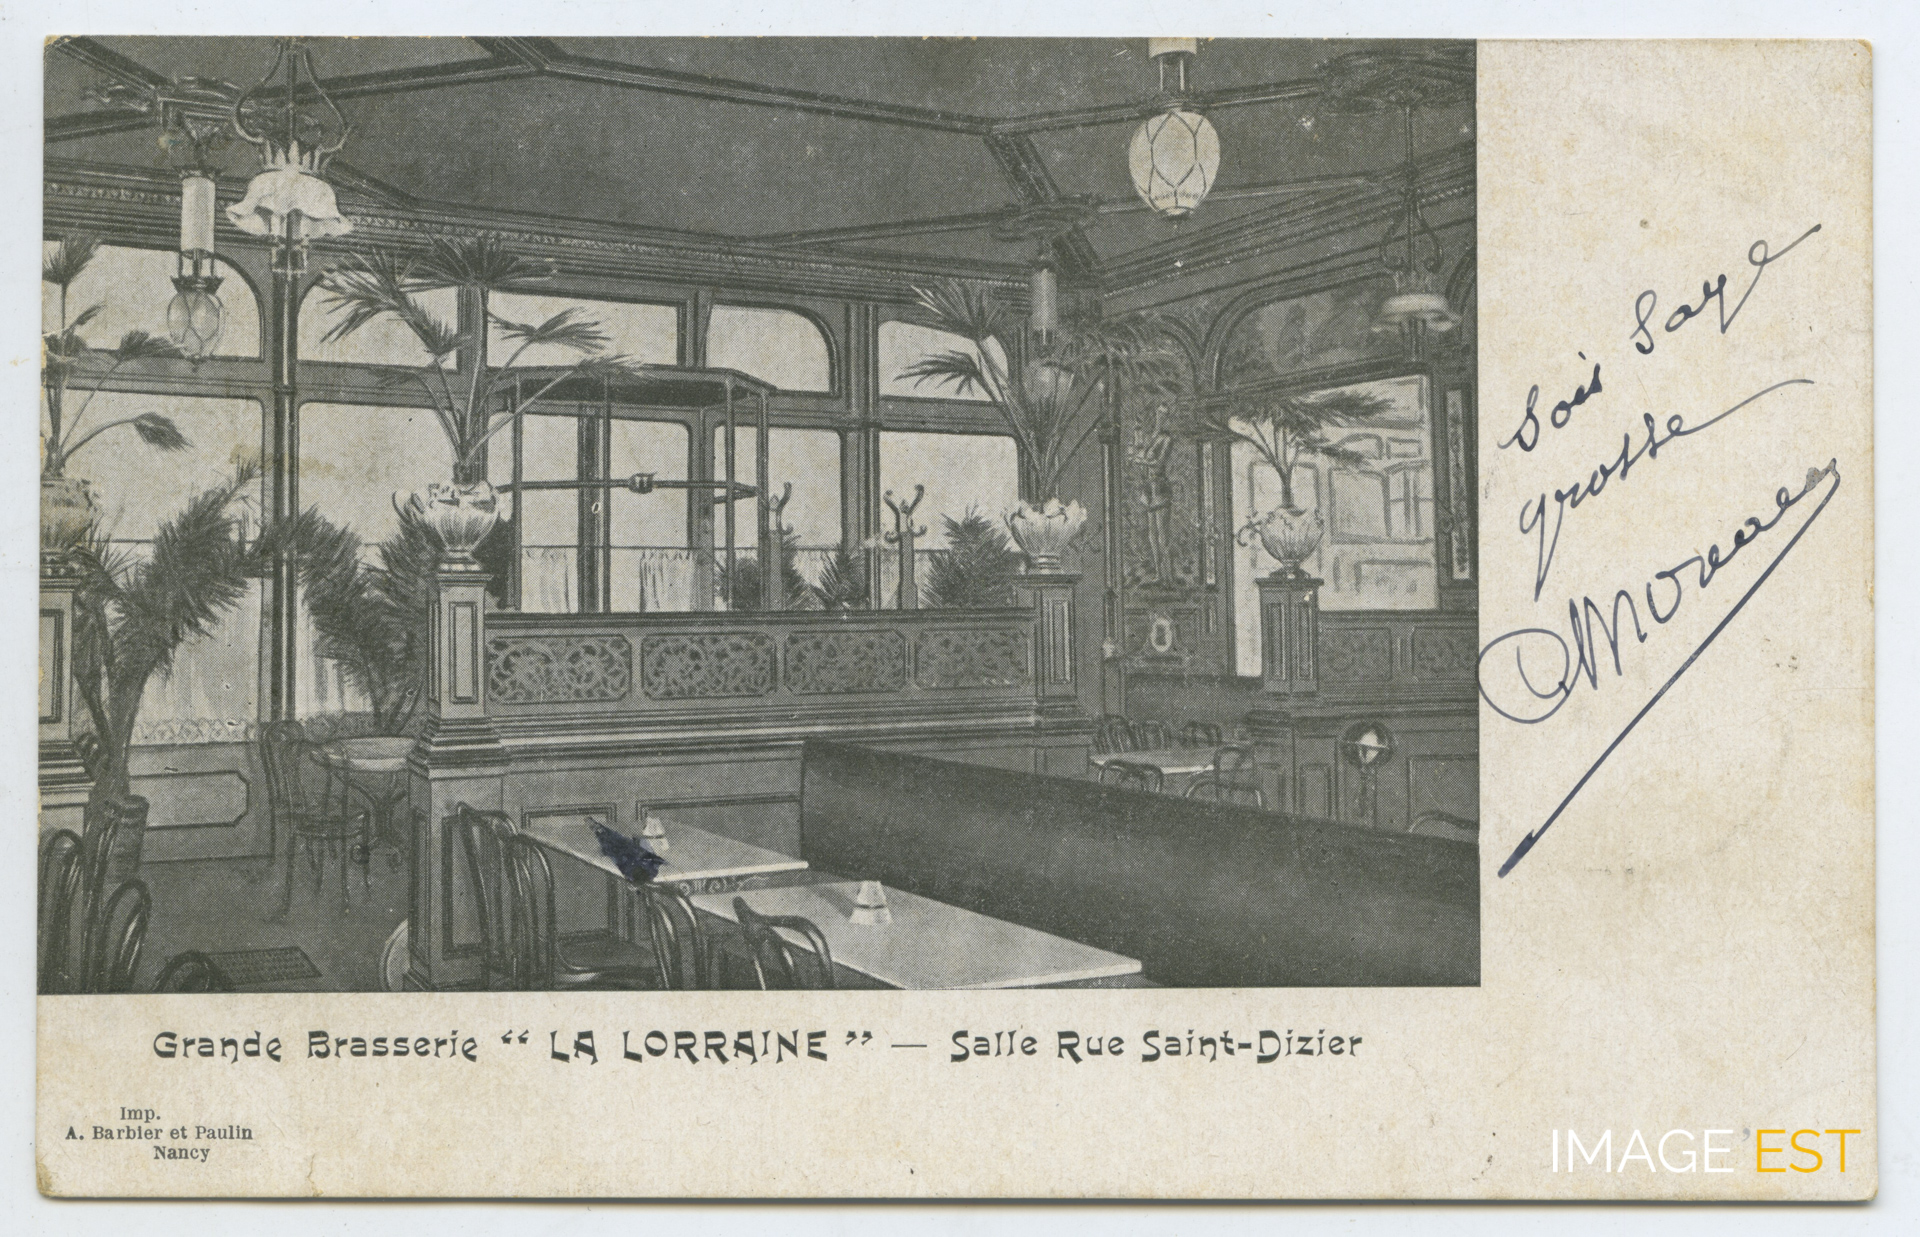 Sois Saye
grosse
Moreau
Grande Brasserie “ LA LORRAINE ” — Salle Rue Saint-Dizier
Imp.
A. Barbier et Paulin
Nancy
IMAGE EST